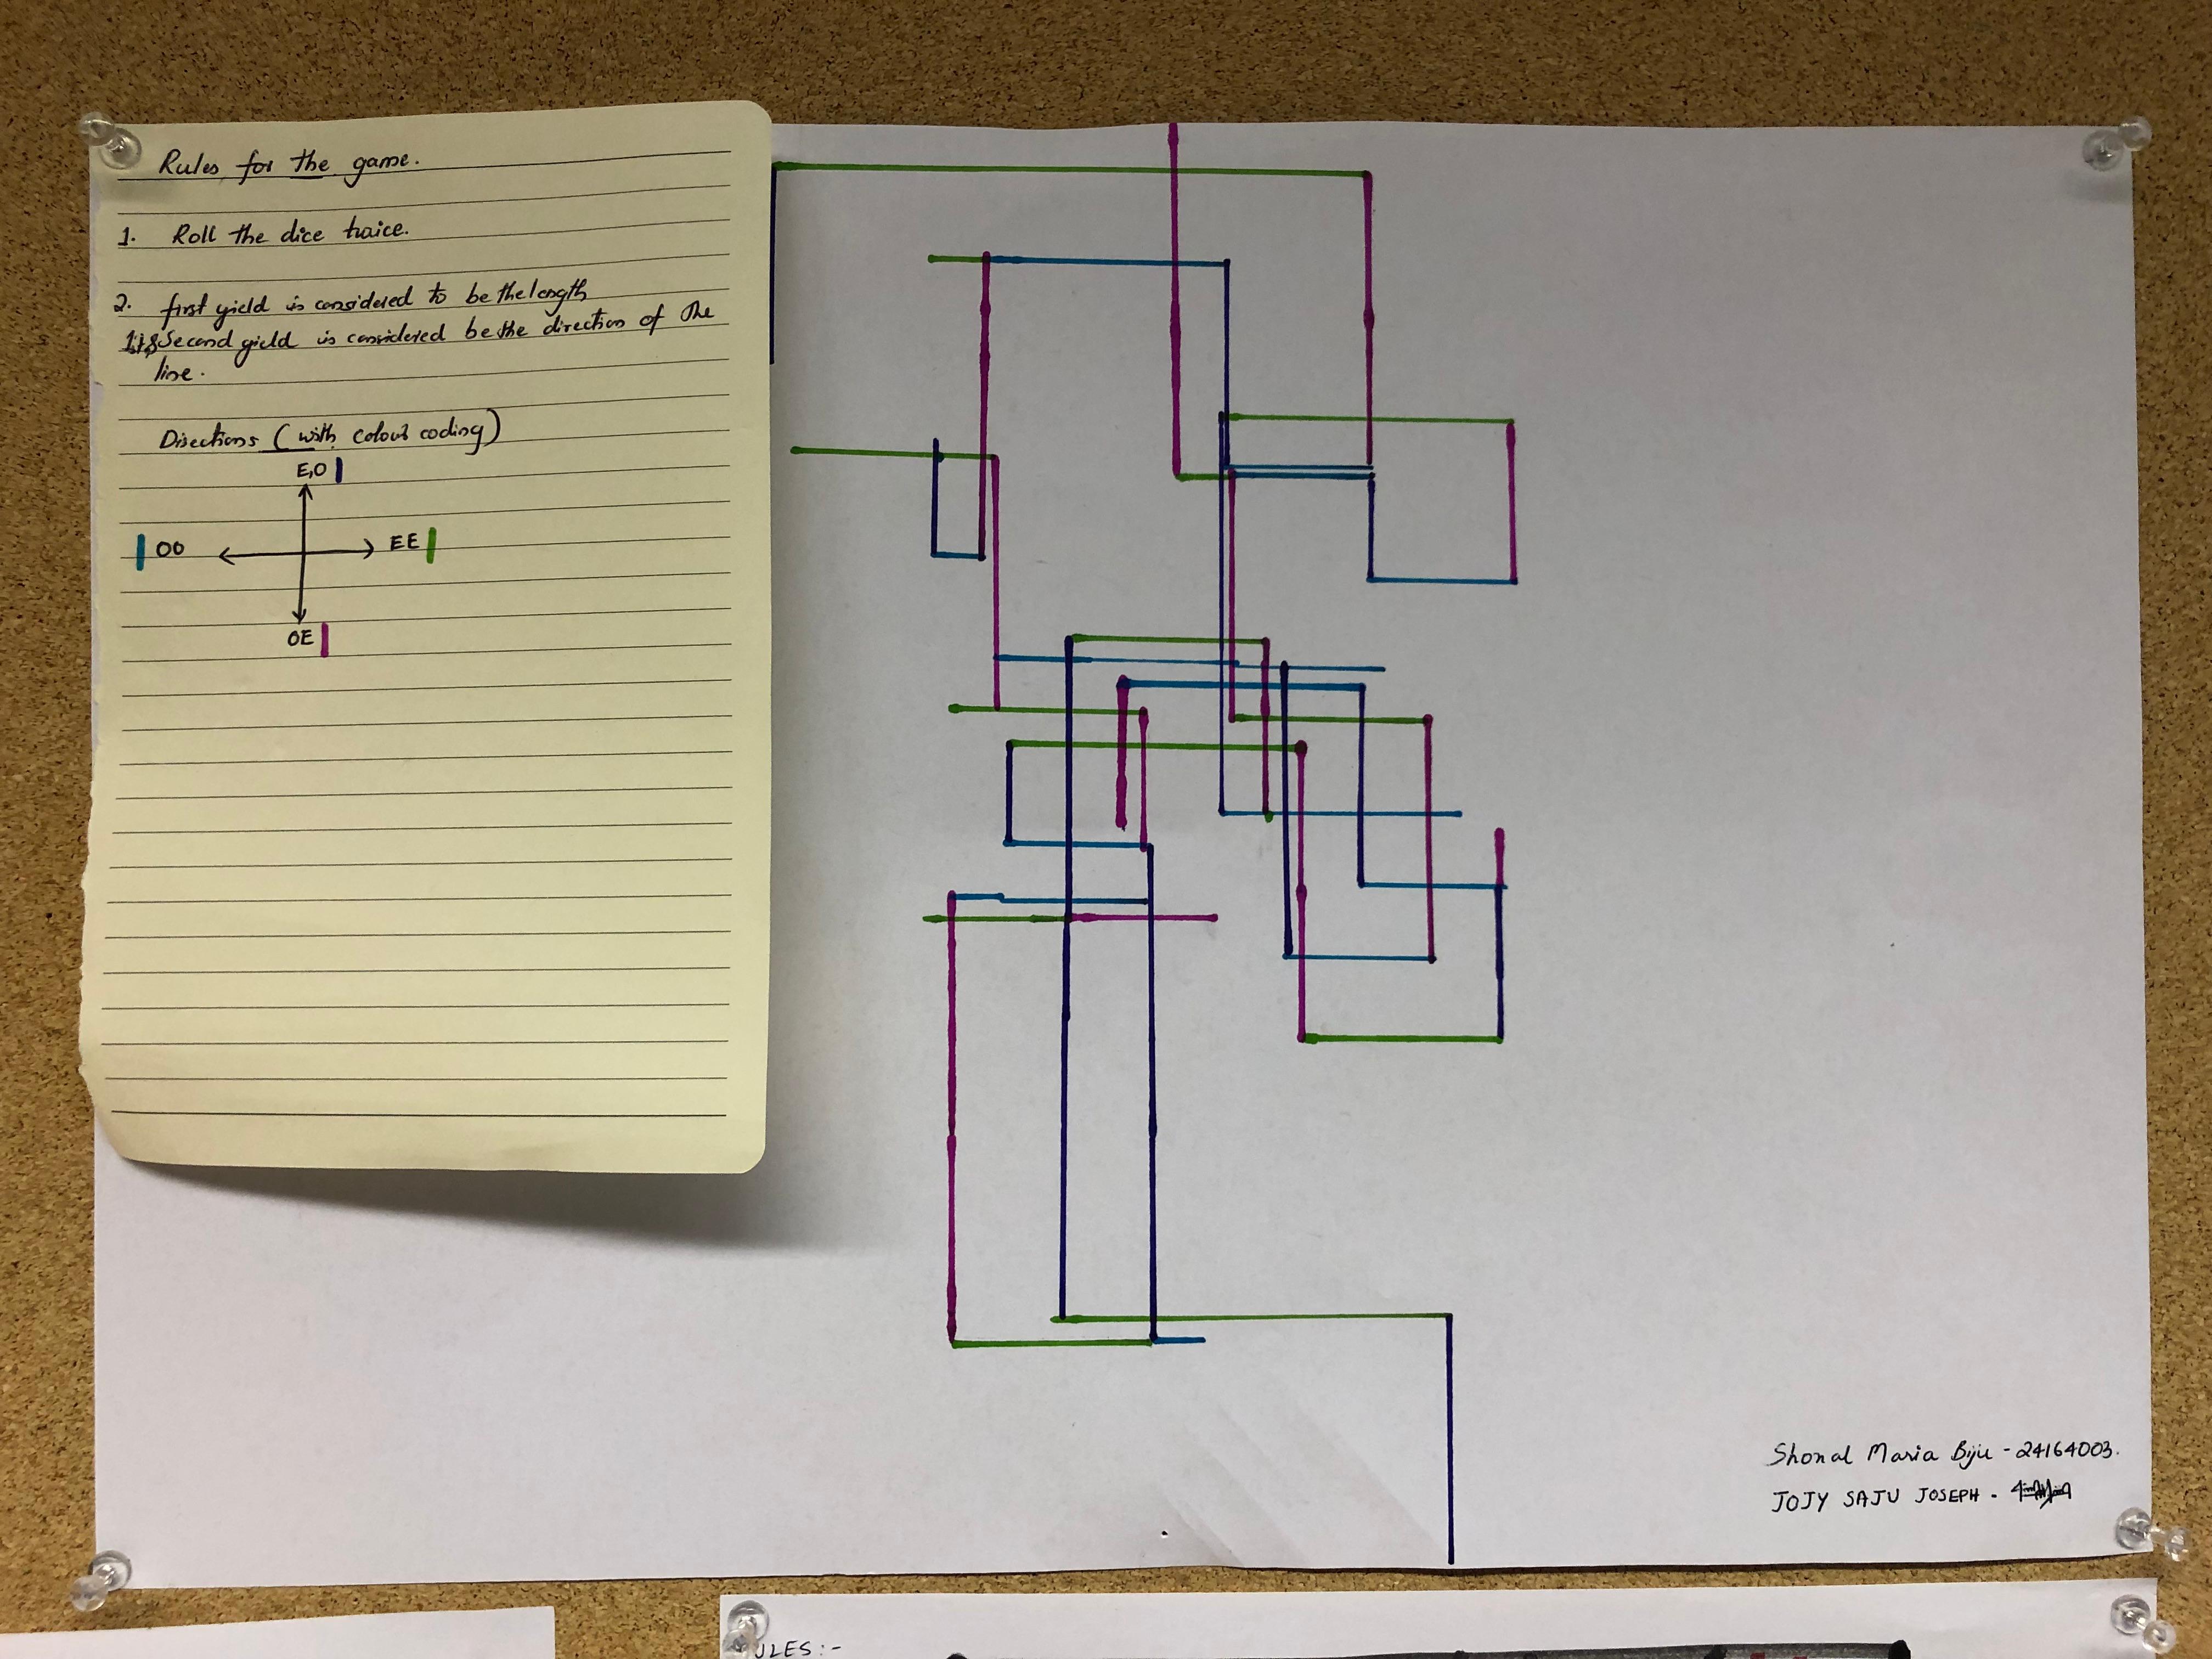 Rules for the game.
1. Roll the dice twice.
2. first yield is considered to be the length
Second yield is considered be the direction of the
line.
Directions (with colour coding)
E,O
OO
EE
OE
Shonal Maria Biju - 24164003.
JOJY SAJU JOSEPH -
ULES:-